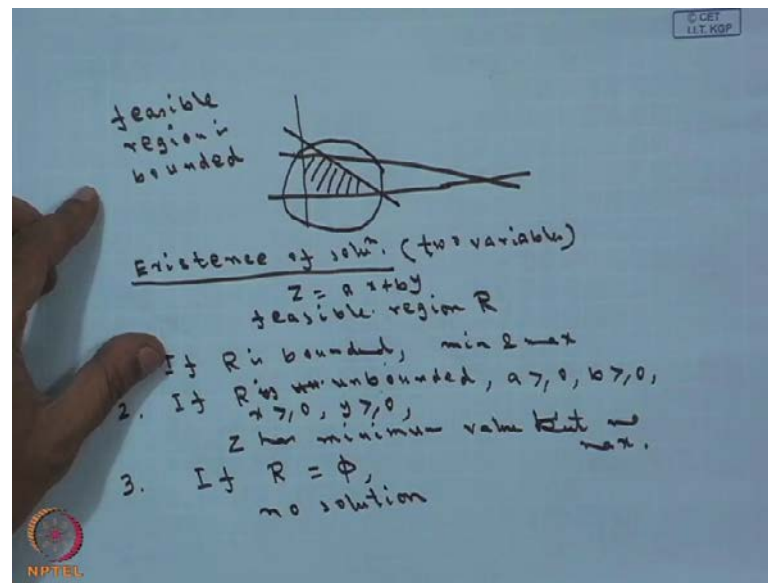 © CET
I.I.T. KGP
feasible
region is
bounded
Existence of solun. (two variable)
Z = ax+by
feasible region R
If R is bounded, min & max
2. If R is unbounded, a ≥ 0, b ≥ 0,
x ≥ 0, y ≥ 0,
Z has minimum value but no
max.
3. If R = φ,
no solution
NPTEL